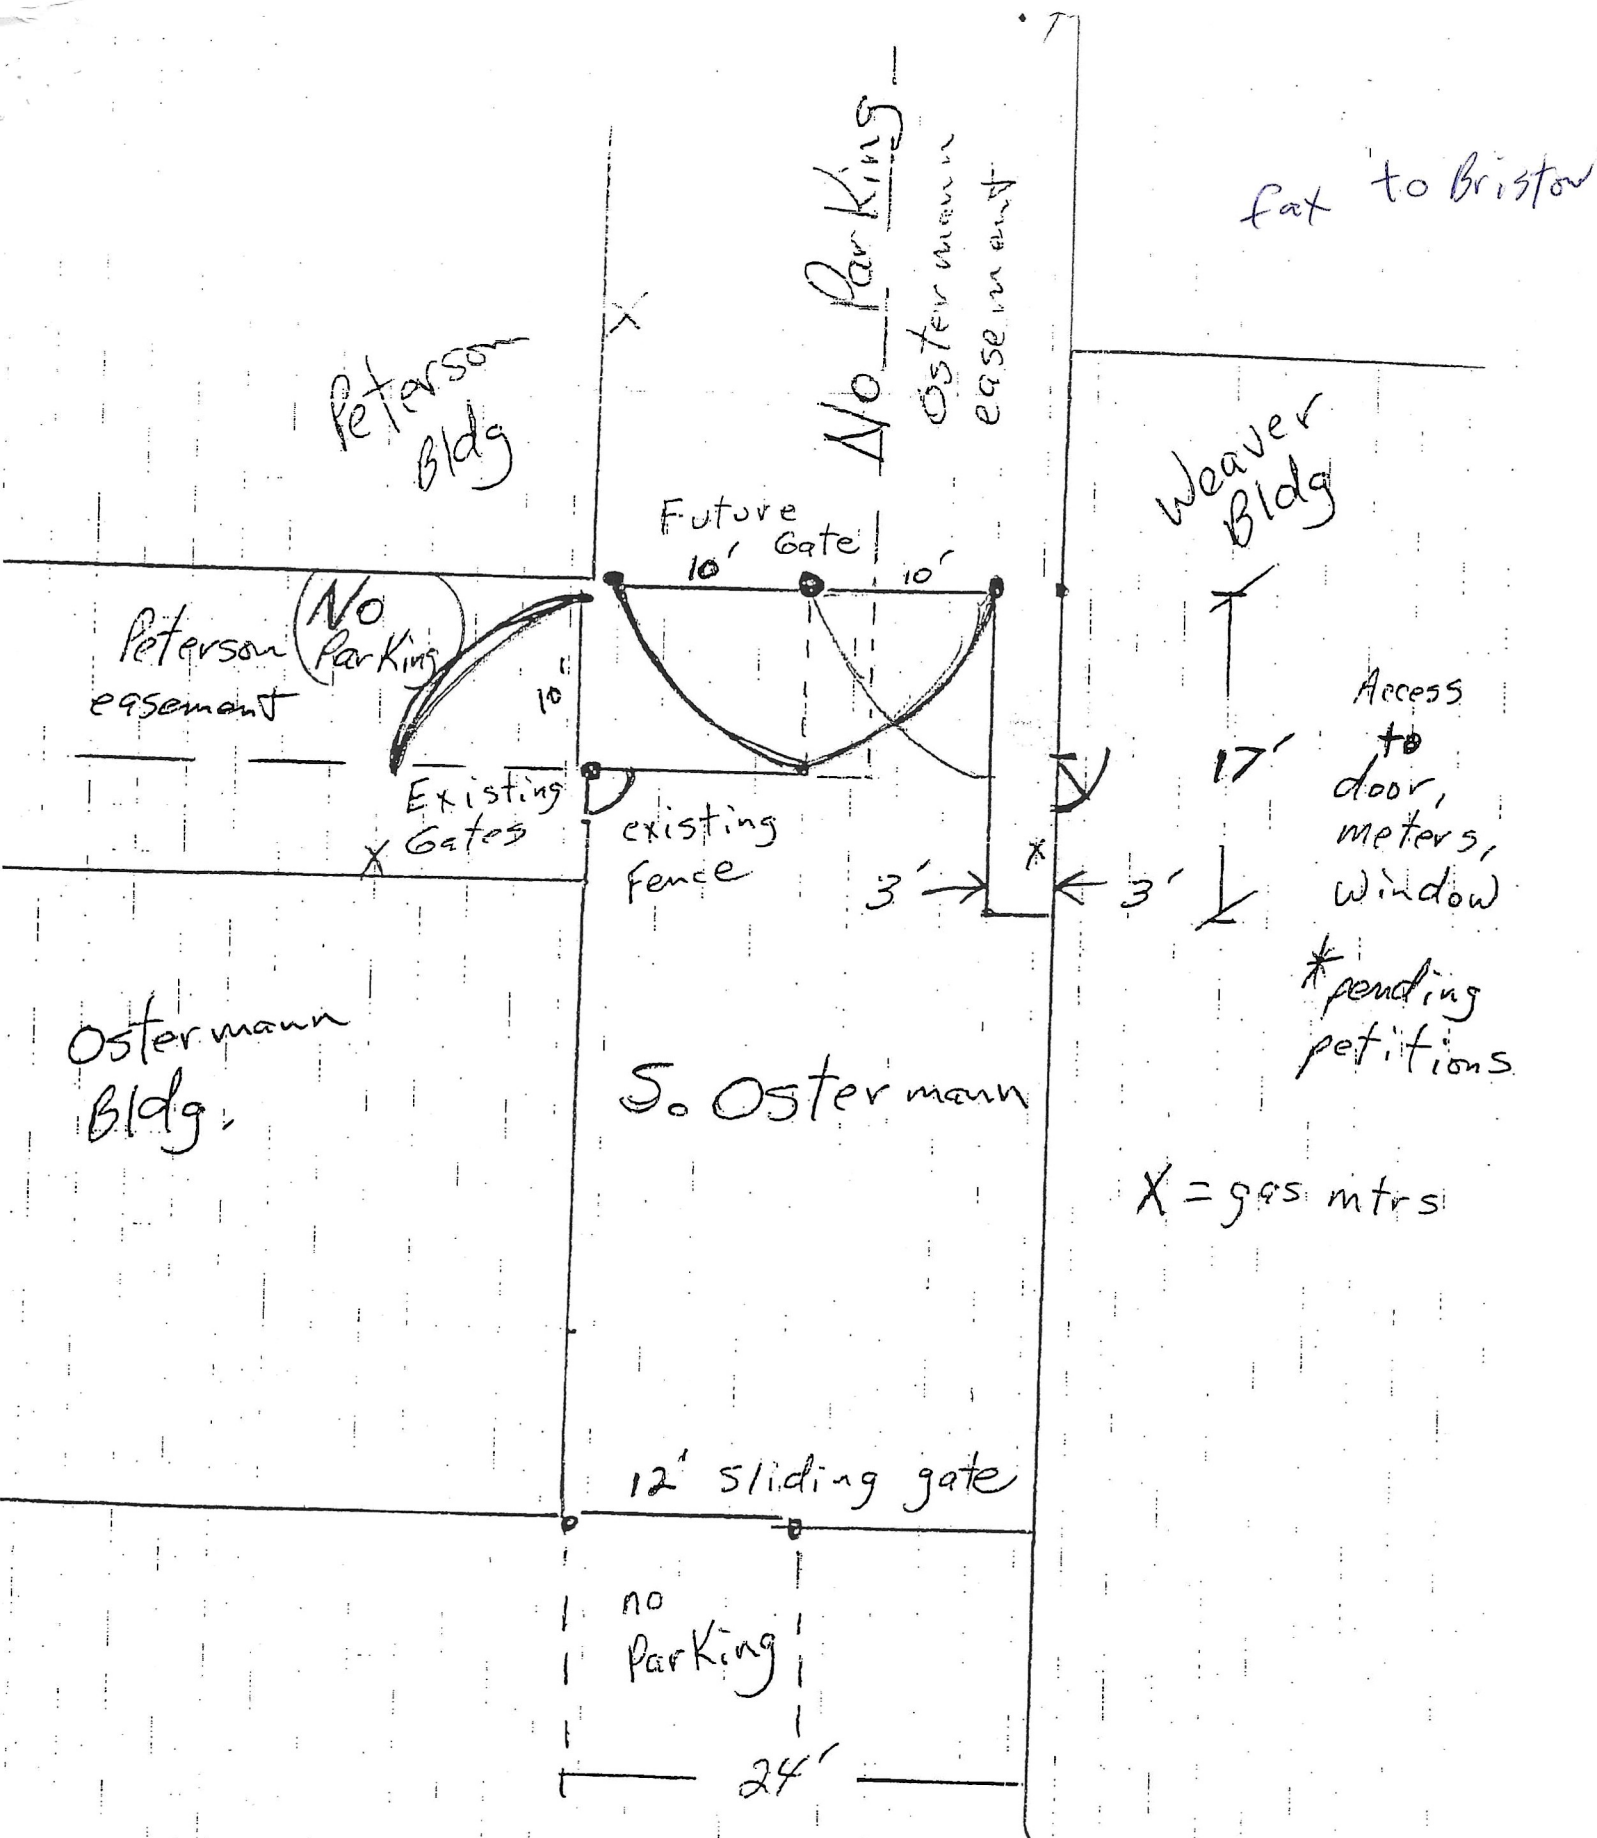 fax to Bristow
No Parking
Ostermann
easement
Peterson
Bldg
Weaver
Bldg
Future
Gate
10'
10'
No
Parking
Peterson
easement
10'
Existing
Gates
existing
fence
X
X
X
3'
3'
17'
Access
to
door,
meters,
window
*pending
petitions
Ostermann
Bldg.
S. Ostermann
X = gas mtrs
12' sliding gate
no
Parking
24'